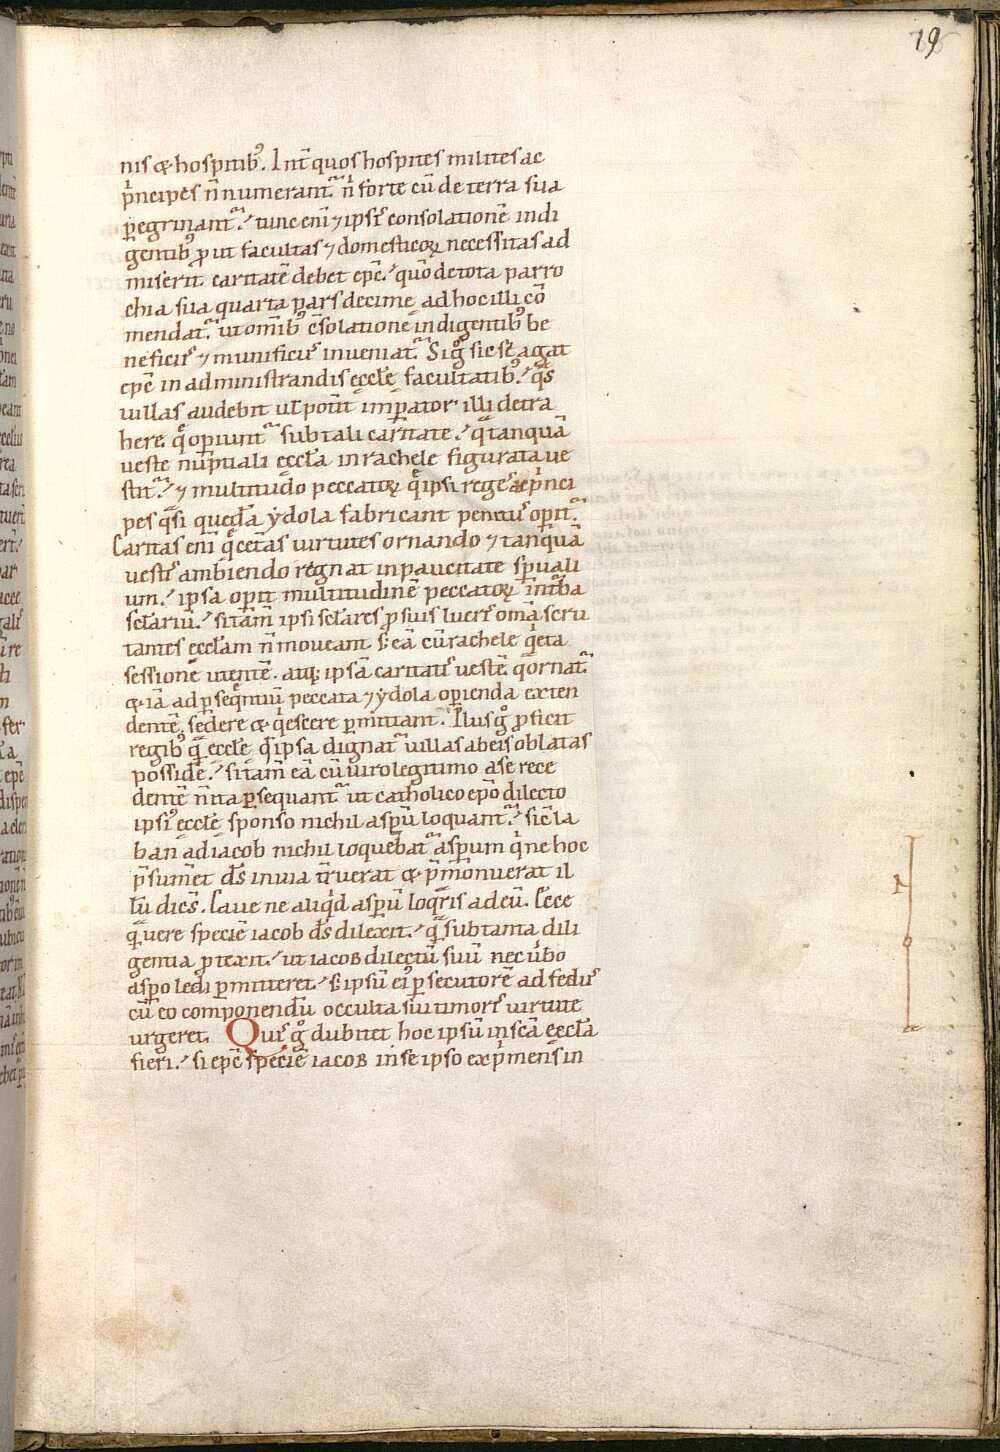 19
nis & hospitib᷒. Int̄ quos hospites milites ac
p̄ncipes n̄ numerant᷒. n̄ forte cū de terra sua
peregrinant᷒. tunc eni᷒ ⁊ ipsis consolationē indi
gentib᷒ ꝓut facultas ⁊ domesticoꝝ necessitas ad
miserit caritatē debet ep̄c. quō de tota parro
chia sua quarta pars decimę ad hoc illi cō
mendat᷒. ut om̄ib᷒ c̄solatione indigentib᷒ be
neficus ⁊ munificus inveniat᷒. Si g̊ sic se agat
ep̄c in administrandis eccłę facultatib᷒. q̄s
villas audebit uł potit imꝑator illi detra
here. q̄ opiunt᷒ sub tali caritate. q̄ tanquā
veste nuptiali eccła in rachele figurata ve
stit᷒. ⁊ multitudo peccatoꝝ q̄ ipsi reges ac p̄nci
pes q̄si quędā ydola fabricant penitus opit᷒.
Caritas eni᷒ q̄ cetās virtutes ornando ⁊ tanquā
vestis ambiendo regnat in paucitate sp̄uali
um. ipsa opit multitudinē peccatoꝝ in t̄ba
scłariū. si tam̄ ipsi scłares ꝓ suis lucris om̄a scru
tantes eccłam n̄ moveant. s; eā cū rachele q̄eta
sessione utentē. atq; ipsā caritatis vestē q̄ ornat᷒
& iā ad ꝑseq̄ntiū peccata ⁊ ydola opienda exten
dentē. sedere & q̄escere ꝑmittant. Plus g̊ ꝓficit
regib᷒ q̄ eccłę q̄ ipsa dignat᷒ villas ab eis oblatas
possidere. si tam̄ eā cū viro legitimo a se rece
dentē n̄ ita ꝑsequant᷒ ut catholico ep̄o dilecto
ipsi᷒ eccłę sponso nichil aspū loquant᷒. sic la
ban ad iacob nichil loquebat᷒ aspum q̄ ne hoc
p̄sumet ds̄ in via tr̄uerat & p̄monuerat il
lū dicens. Cave ne aliq̄d aspū loq̄ris ad eū. Ecce
q̄ vere speciē iacob ds̄ dilexit. q̄ sub tanta dili
gentia ꝓtexit. ut iacob dilectū suū nec v̄bo
aspo ledi ꝑmitteret. s; ipsū ei᷒ ꝑsecutorē ad fedus
cū eo componendū occulta sui timoris virtute
urgeret. Quis g̊ dubitet hoc ipsū in scā eccła
fieri. si ep̄c speciē iacob in se ipso exp̄mens in